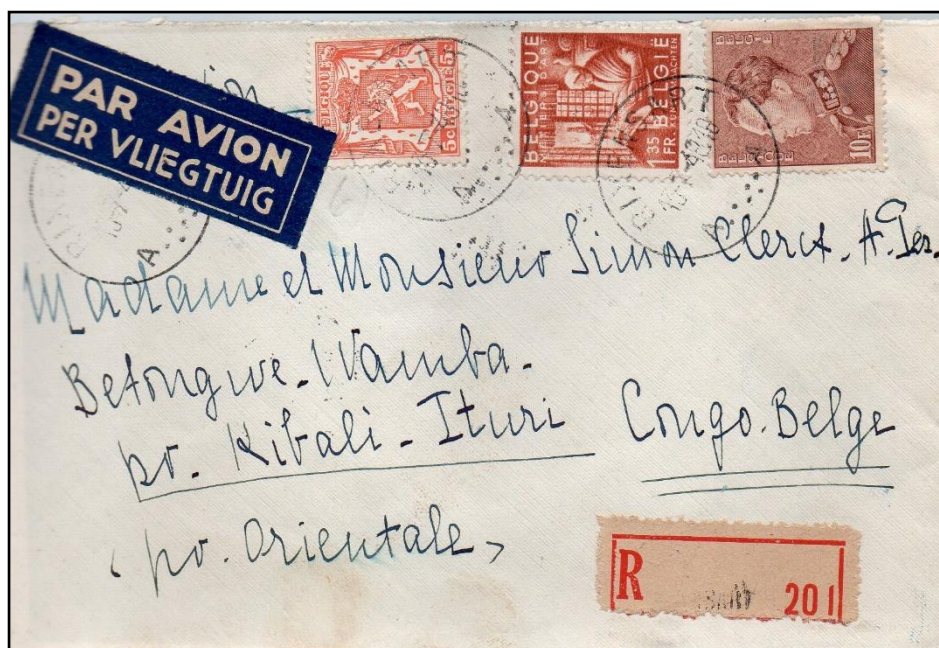 PAR AVION
PER VLIEGTUIG
BELGIQUE 5c
5c BELGIË
BELGIQUE
METIERS D'ART
1 FR. 35
BELGIË
BELGIE
BELGIQUE
10F
Madame et Monsieur Simon Clercx
Betongwe - Wamba -
pr. Kibali - Ituri
Congo. Belge
(pr. Orientale)
R
201